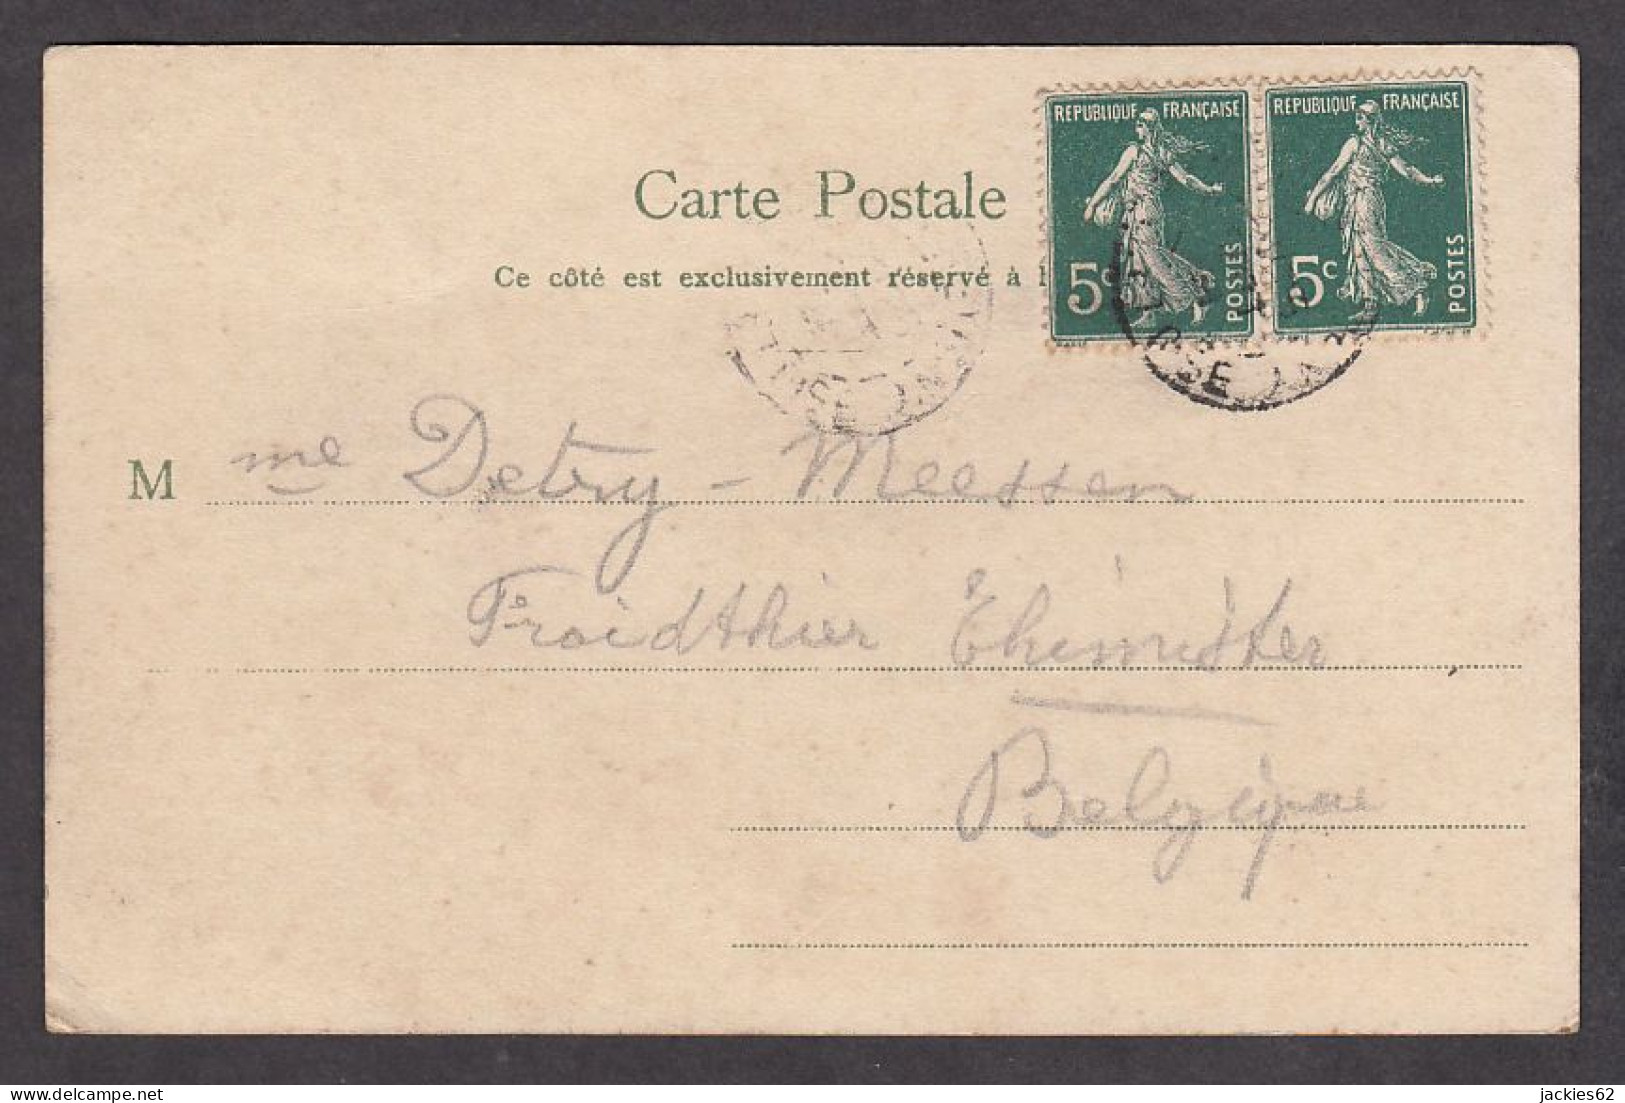 REPUBLIQUE FRANÇAISE
REPUBLIQUE FRANÇAISE
5c
POSTES
5c
POSTES
Carte Postale
Ce côté est exclusivement réservé à l
M me Detry - Meessen
Froidthier Thimister
Belgique
jackies62